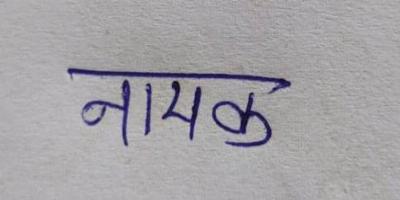 नायक